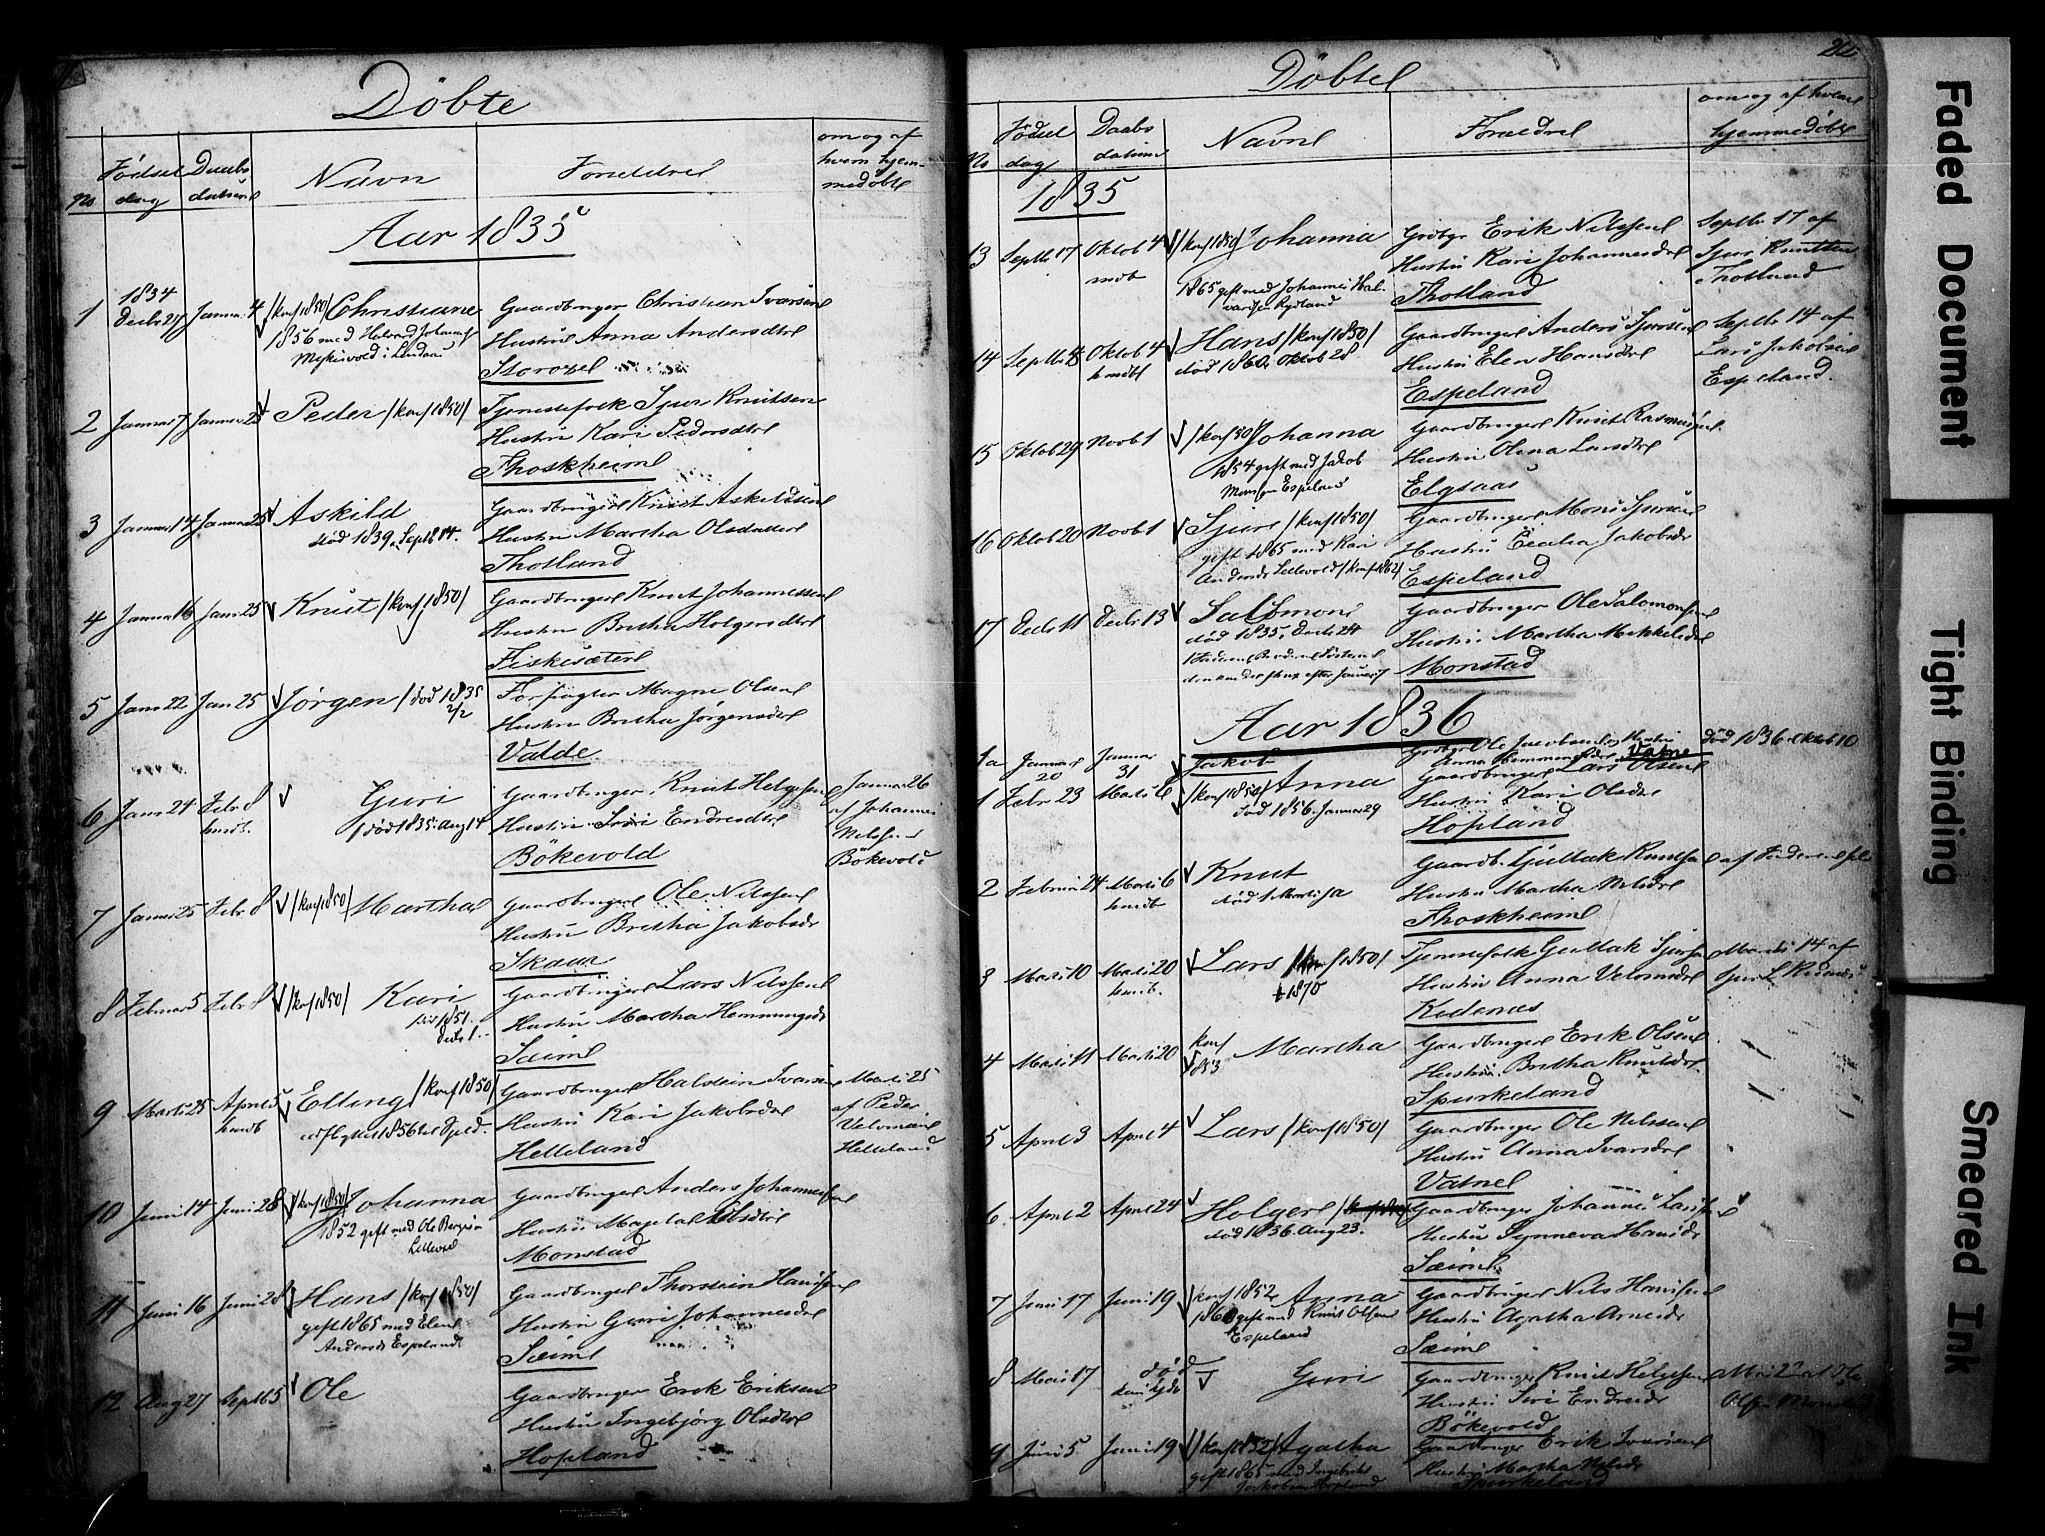 Döbte
No
Födsel
dag
Daabs
datum
Navn
Foreldre
om og af
hvem hjem-
medöbt
Aar 1835
1
1834
Decbr 27
Januar 4
/konf 1850/ Christiane
1856 med
Gaardbruger Christian Ivarsen
Hustru Anna Andersdtr
2
Januar 7
Januar 25
Peder /konf 1850/
Tjenestefolk Sjur Knutsen
Hustru Kari Pedersdtr
Thoskheim
3
Januar 14
Januar 25
Askild
död 1839. Septb 14.
Gaardbruger Knut Askildsen
Hustru Martha Olsdatter
Thotland
4
Januar 16
Janr 25
Knut /konf 1850/
Gaardbruger Knut Johannessen
Hustru Britha Holgersdtr
Fiskesæter
5
Janr 22
Jan 25
Jørgen / död 1835
2/2
Forpagter Magne Olsen
Hustru Britha Jørgensdtr
Valde
6
Janr 24
Febr 8
hmdt.
Guri
/ död 1835. Aug 14
Gaardbruger Knut Helgesen
Hustru Siri Endresdtr
Bökevold
Januar 26
af Johannes
Nilssen
Bökevold
7
Januar 25
Febr 8
/konf 1850/ Martha
Gaardbruger Ole Nilssen
Hustru Britha Jakobsdr
Skaar
8
Februar 5
Febr 8
/konf 1850/ Kari
död 1851.
Decb 1.
Gaardbruger Lars Nilssen
Hustru Martha Hemmingsdr
Sæim
9
Marts 25
April 5
hmdt
Elling /konf 1850/
udflyttet 1856 til
Gaardbruger Halstein Ivarsen
Hustru Kari Jakobsdtr
Helleland
Marts 25
af Peder
Helleland
10
Juni 14
Juni 28
/konf 1850/ Johanna
1852 gift med Ole
Gaardbruger Anders Johannessen
Hustru Magela Olsdtr
Monstad
11
Juni 16
Juni 28
Hans /konf 1850/
gift 1865 med Elen
Andersdr Espeland
Gaardbruger Thorstein Hansen
Hustru Guri Johannesdtr
Sæim
12
Aug 27
Septb 5
Ole
Gaardbruger Erik Eriksen
Hustru Ingebjørg Olsdtr
Hopland
Döbte
No
Födsel
dag
Daabs
datum
Navn
Foreldre
om og af hvem
hjemmedöbt
1835
13
Septb 17
Oktob 4
/konf 1850/ Johanna
1865 gift med Johannes Hal-
varsen Rydland
Grdbgr Erik Nilssen
Hustru Kari Johannesdtr
Thotland
Septbr 17 af
Sjur Knutsen
Thotland
14
Septb
Oktob 4
hmdt
Hans /konf 1850/
död 1860. Oktob 28
Gaardbruger Anders Sjursen
Hustru Elen Hansdtr
Espeland
Septbr 14 af
Lars Jakobsen
Espeland.
15
Oktob 29
Novb 1
/konf 50/ Johanna
1854 gift med Jakob
Monsen Espeland
Gaardbruger Knut Rasmussen
Hustru Olena Larsdtr
Elgsaas
16
Oktob 20
Novb 1
Sjur /konf 1850/
gift 1865 med Kari
Andersdr Lillevold /konf 1862/
Gaardbruger Mons Sjursen
Hustru Cecilia Jakobsdr
Espeland
17
Decb 11
Decbr 13
Salomon
död 1835. Decb 24
Gaardbruger Ole Salomonsen
Hustru Martha Mikkelsdtr
Monstad
Aar 1836
1a
Januar
20
Januar
31
Jakob
Grdbgr Ole Jacobsen og Hustru
Anna Hemmingsdtr Vatne
död 1836 Oktob 10
1
Febr 23
Marts 6
/konf 1850/ Anna
död 1856. Januar 29
Gaardbruger Lars Olsen
Hustru Kari Olsdtr
Hopland
2
Februar 24
Marts 6
hmdt
Knut
Gaardb. Gullak Knutsen
Hustru Martha Nilsdtr
Thoskheim
3
Marts 10
Marts 20
hmdt.
Lars /konf 1850/
† 1870
Tjenestefolk Gullak Sjursen
Hustru Anna
Kidenæs
Marts 14 af
Sjur L Kidenæs
4
Marts 11
Marts 20
konf
1853
Martha
Gaardbruger Erik Olsen
Hustru Britha Knutsdtr.
Spurkeland
5
April 3
April 4
Lars /konf 1850/
Gaardbruger Ole Nilssen
Hustru Anna Ivarsdtr
Vatne
6
April 2
April 24
Holger
död 1836. Aug 23.
Gaardbruger Johannes Larssen
Hustru Synneva Hansdr
Sæim
7
Juni 17
Juni 19
/konf 1852 Anna
gift med Knut Olsen
Espeland
Gaardbruger Nils Hanssen
Hustru Agatha Arnesdr
Sæim
8
Mai 17
död
Guri
Gaardbruger Knut Helgesen
Hustru Siri Endresdr
Bökevold
Mai 2 af Ole
Olsen Monstad
9
Juni 5
Juni 19
/konf 1852/ Agatha
gift 1865 med
Jakobsen Hopland
Gaardbruger Erik Ivarsen
Hustru Martha Nilsdr
Spurkeland
Faded Document
Tight Binding
Smeared Ink